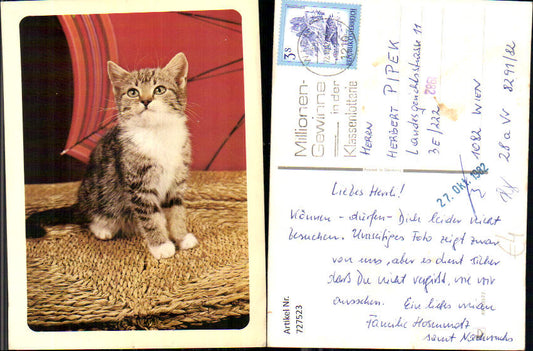 3s
REPUBLIK ÖSTERREICH
1210
Millionen-
Gewinne
in der
Klassenlotterie
HERRN
HERIBERT PIPEK
Landesgerichtsstrasse 11
3E/222
1082 WIEN
28 a Vr 8291/82
27. Okt. 1982
Lieber Herib.!
Können - dürfen - Dich leider nicht
besuchen. Umseitiges Foto zeigt zwar
von uns, aber es dient sicher
daß Du nicht vergißt, wie wir
aussehen. Ein liebes miau
Familie
samt Nachwuchs
Artikel Nr.
727523